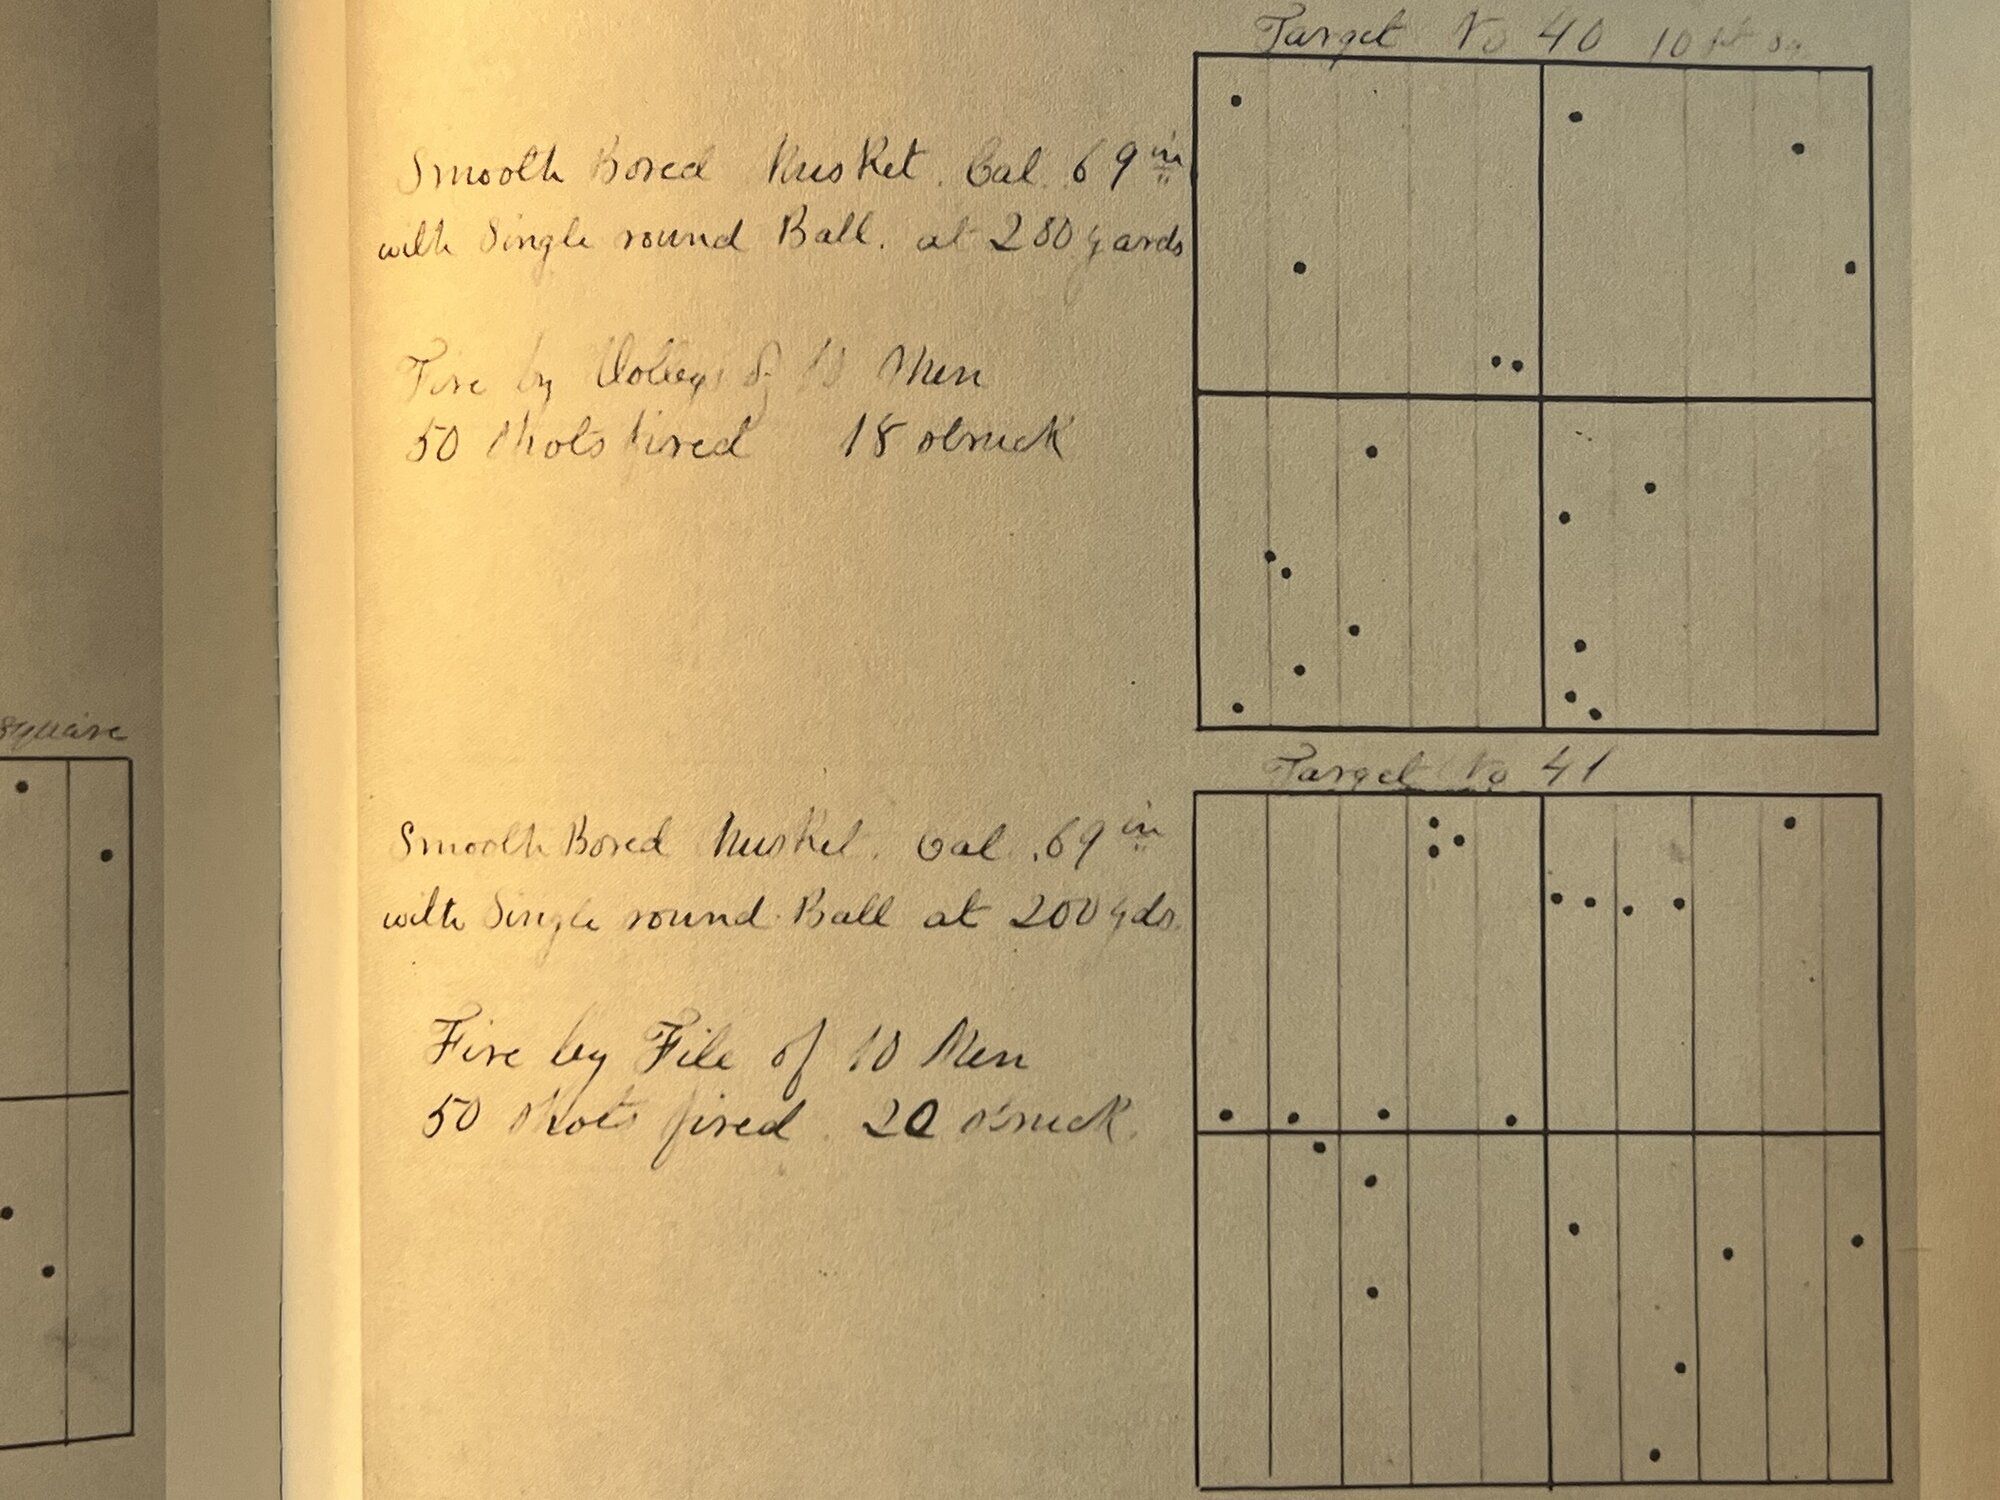 square
Target No 40 10 ft sq
Smooth Bored Musket. Cal .69 in
with Single round Ball. at 200 yards
Fire by Volleys of 10 Men
50 shots fired 18 struck
Target No 41
Smooth Bored Musket. Cal .69 in
with Single round Ball at 200 yds.
Fire by File of 10 Men
50 shots fired. 20 struck.